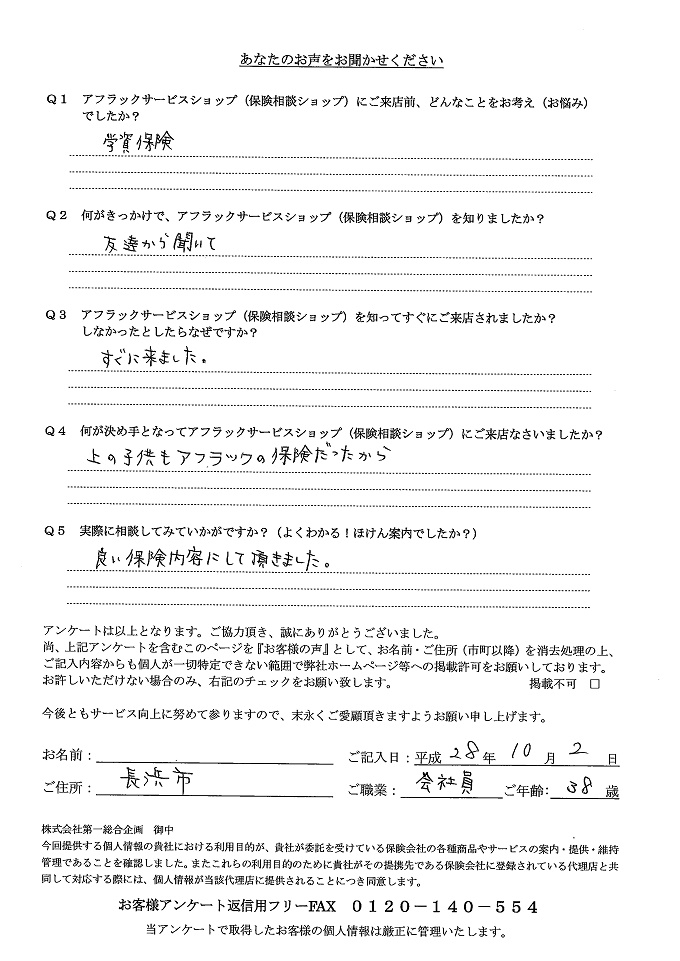 あなたのお声をお聞かせください
Q1 アフラックサービスショップ（保険相談ショップ）にご来店前、どんなことをお考え（お悩み）
でしたか？
学資保険
Q2 何がきっかけで、アフラックサービスショップ（保険相談ショップ）を知りましたか？
友達から聞いて
Q3 アフラックサービスショップ（保険相談ショップ）を知ってすぐにご来店されましたか？
しなかったとしたらなぜですか？
すぐに来ました。
Q4 何が決め手となってアフラックサービスショップ（保険相談ショップ）にご来店なさいましたか？
上の子供もアフラックの保険だったから
Q5 実際に相談してみていかがですか？（よくわかる！ほけん案内でしたか？）
良い保険内容にして頂きました。
アンケートは以上となります。ご協力頂き、誠にありがとうございました。
尚、上記アンケートを含むこのページを『お客様の声』として、お名前・ご住所（市町以降）を消去処理の上、
ご記入内容からも個人が一切特定できない範囲で弊社ホームページ等への掲載許可をお願いしております。
お許しいただけない場合のみ、右記のチェックをお願い致します。 掲載不可 □
今後ともサービス向上に努めて参りますので、末永くご愛顧頂きますようお願い申し上げます。
お名前： ご記入日：平成 28 年 10 月 2 日
ご住所： 長浜市 ご職業： 会社員 ご年齢： 38 歳
株式会社第一総合企画 御中
今回提供する個人情報の貴社における利用目的が、貴社が委託を受けている保険会社の各種商品やサービスの案内・提供・維持
管理であることを確認しました。またこれらの利用目的のために貴社がその提携先である保険会社に登録されている代理店と共
同して対応する際には、個人情報が当該代理店に提供されることにつき同意します。
お客様アンケート返信用フリーFAX 0120－140－554
当アンケートで取得したお客様の個人情報は厳正に管理いたします。